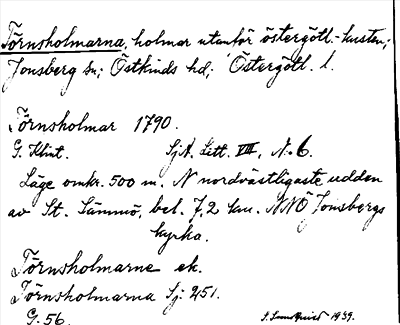 Törnsholmarna, holmar utanför östergötl.-kusten;
Jonsberg sn; Östkinds hd; Östergötl. l.
Törnsholmar 1790.
G. Klint. SjA. Litt. VIII, N. 6.
Läge omkr. 500 m. N nordvästligaste udden
av St. Lämmö, bel. 7,2 km. NNO Jonsbergs
kyrka.
Törnsholmarne ek.
Törnsholmarna Sj. 251.
G. 56. 1939.